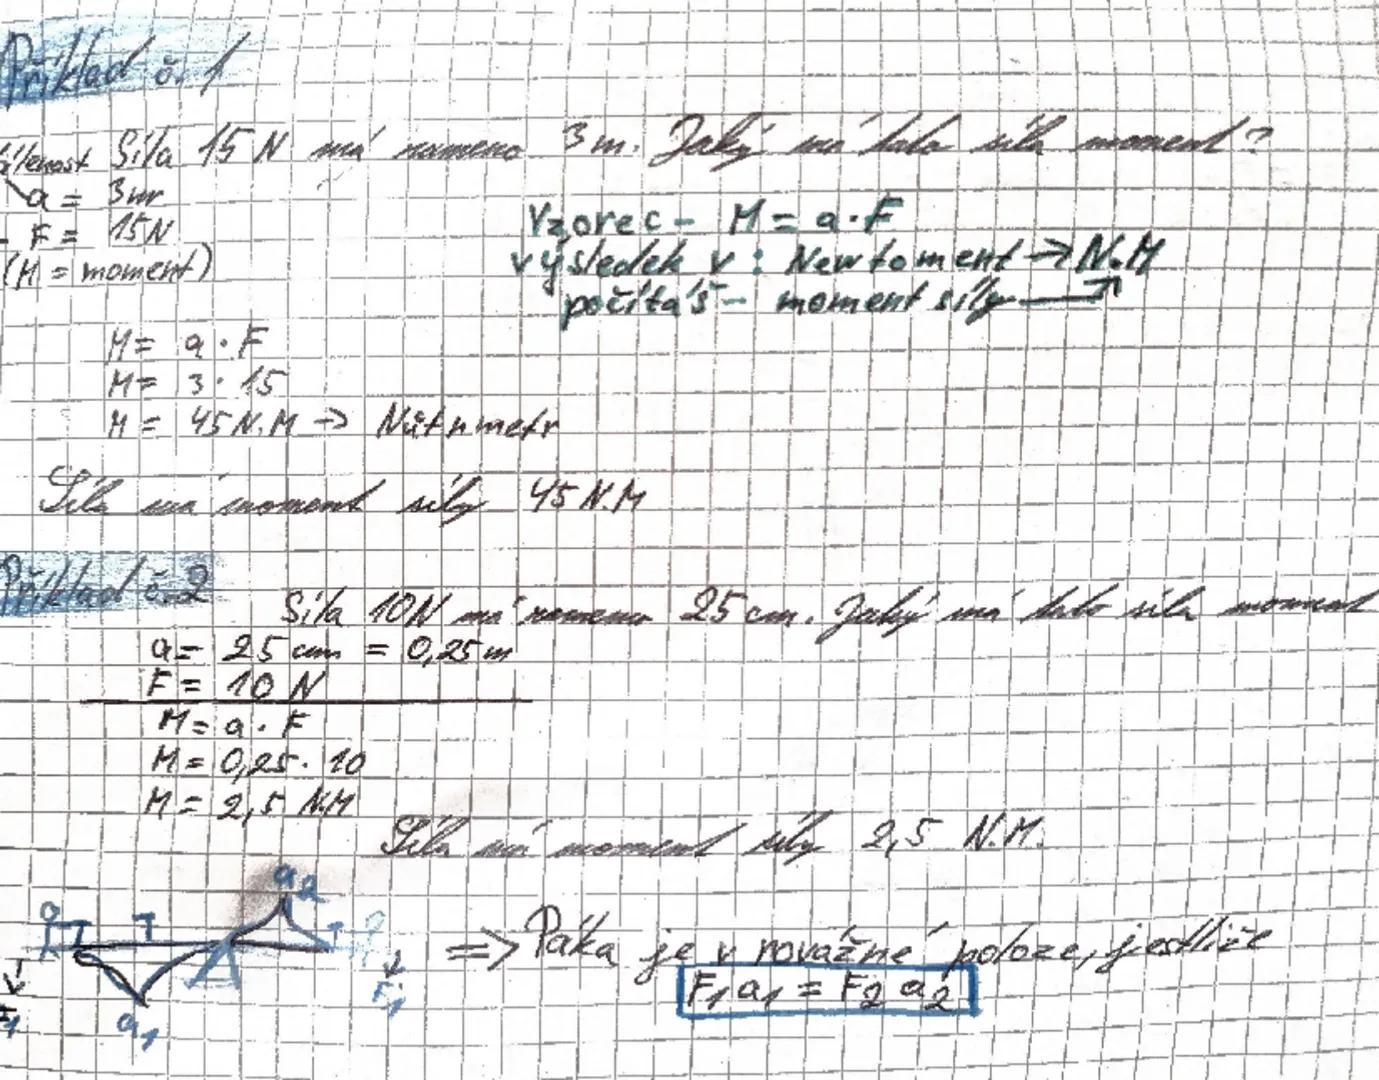 Příklad č. 1
Síla 15 N má rameno 3 m. Jaký má tato síla moment?
a = 3m
F = 15N
(M = moment)
Vzorec - M = a · F
výsledek v : Newtoment → N.M
počítáš - moment síly
M = a · F
M = 3 · 15
M = 45 N.M → Nůtnmetr
Síla má moment síly 45 N.M
Příklad č.2
Síla 10N má rameno 25 cm. Jaký má tato síla moment
a = 25 cm = 0,25 m
F = 10 N
M = a · F
M = 0,25 · 10
M = 2,5 N.M
Síla má moment síly 2,5 N.M.
a2
a1
F1
=> Páka je v rovážné poloze, jestliže
F1 a1 = F2 a2